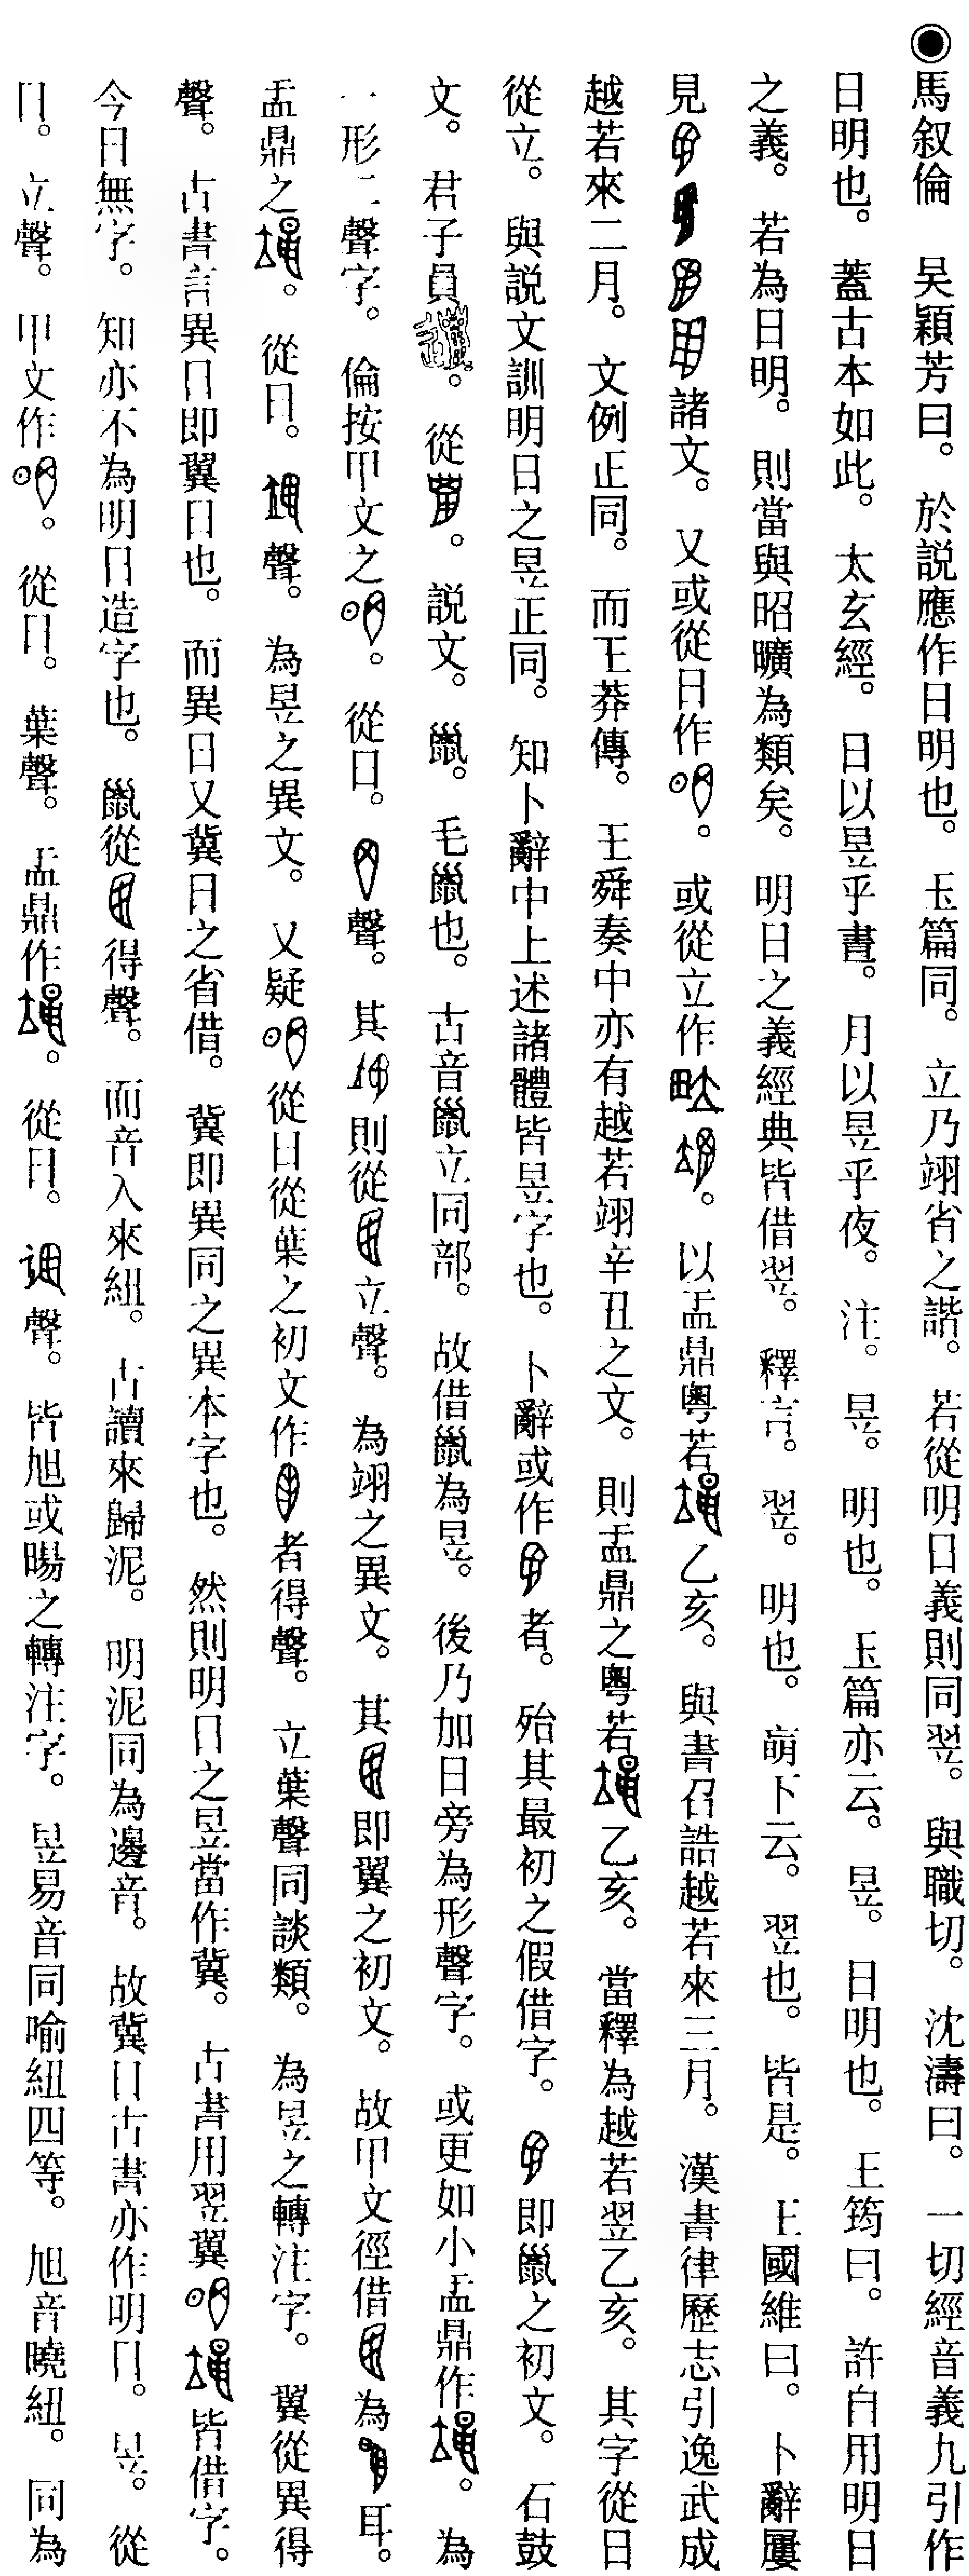 ◉馬叙倫　吴穎芳曰。於説應作日明也。玉篇同。立乃翊省之諧。若從明日義則同翌。與職切。沈濤曰。一切經音義九引作
日明也。蓋古本如此。太玄經。日以昱乎晝。月以昱乎夜。注。昱。明也。玉篇亦云。昱。日明也。王筠曰。許自用明日
之義。若為日明。則當與昭曠為類矣。明日之義經典皆借翌。釋言。翌。明也。萌下云。翌也。皆是。王國維曰。卜辭屢
見諸文。又或從日作。或從立作。以盂鼎粵若乙亥。與書召誥越若來三月。漢書律歷志引逸武成
越若來二月。文例正同。而王莽傳。王舜奏中亦有越若翊辛丑之文。則盂鼎之粵若乙亥。當釋為越若翌乙亥。其字從日
從立。與説文訓明日之昱正同。知卜辭中上述諸體皆昱字也。卜辭或作者。殆其最初之假借字。即巤之初文。石鼓
文。君子員。從。説文。巤。毛巤也。古音巤立同部。故借巤為昱。後乃加日旁為形聲字。或更如小盂鼎作。為
一形二聲字。倫按甲文之。從日。聲。其則從立聲。為翊之異文。其即翼之初文。故甲文徑借為耳。
盂鼎之。從日。聲。為昱之異文。又疑從日從葉之初文作者得聲。立葉聲同談類。為昱之轉注字。翼從異得
聲。古書言異日即翼日也。而異日又冀日之省借。冀即異同之異本字也。然則明日之昱當作冀。古書用翌翼皆借字。
今日無字。知亦不為明日造字也。巤從得聲。而音入來紐。古讀來歸泥。明泥同為邊音。故冀日古書亦作明日。昱。從
日。立聲。甲文作。從日。葉聲。盂鼎作。從日。聲。皆旭或晹之轉注字。昱易音同喻紐四等。旭音曉紐。同為